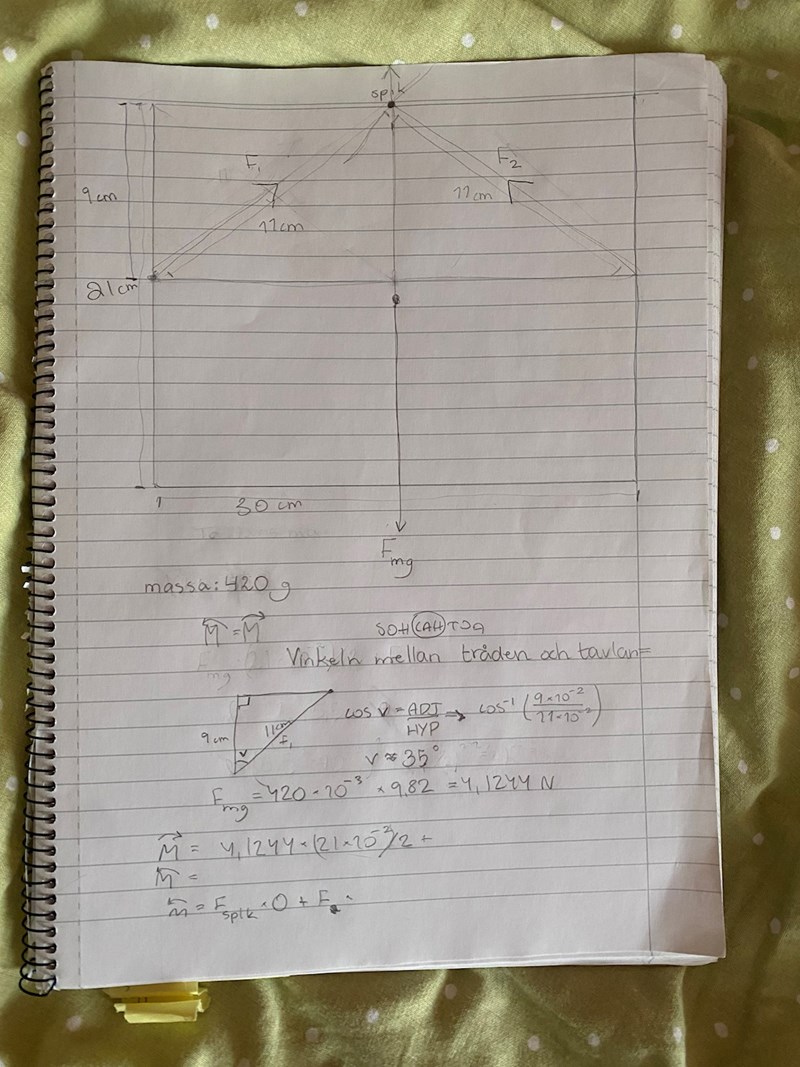 spik
F₁
F₂
9 cm
11 cm
11 cm
21 cm
30 cm
Fmg
massa: 420 g
M = M
SOH CAH TOA
Vinkeln mellan tråden och tavlan=
9 cm
11 cm
F₁
v
cos v = ADJ/HYP → cos⁻¹ (9×10⁻²/11×10⁻²)
v ≈ 35°
Fmg = 420 × 10⁻³ × 9,82 = 4,1244 N
M = 4,1244 × (21×10⁻²)/2 +
M =
M = Fspik × 0 + F